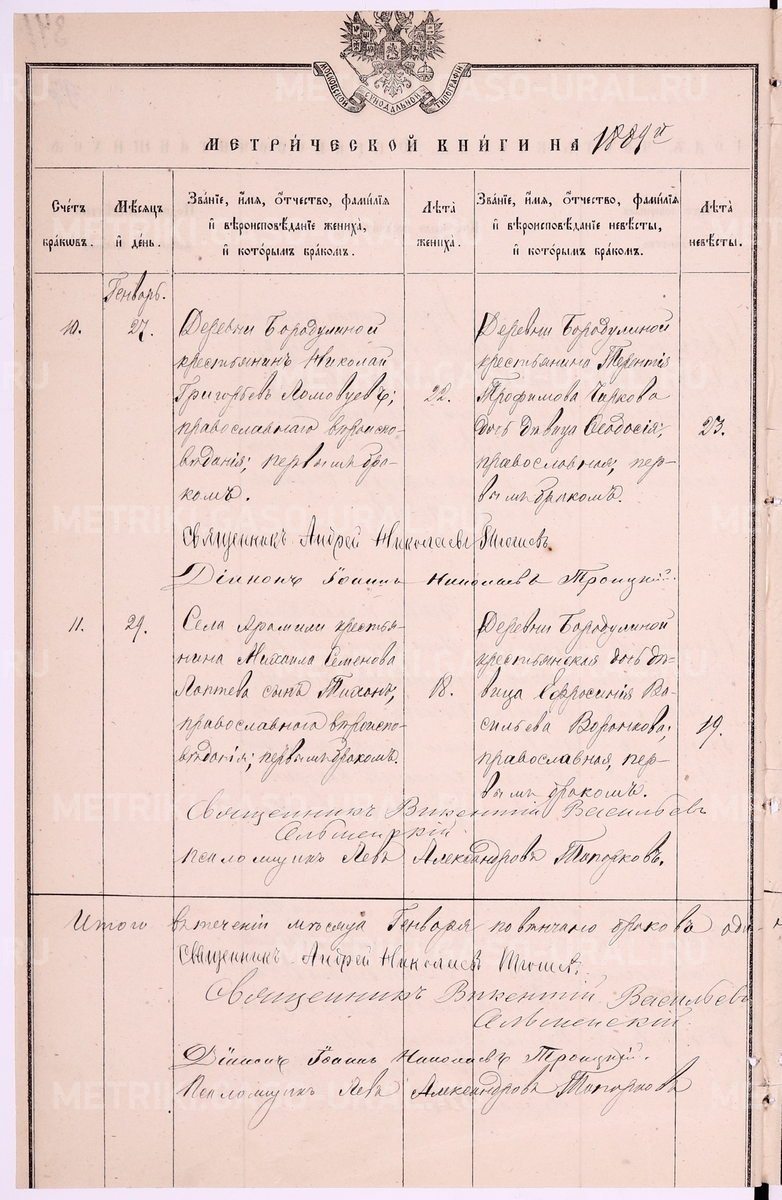 МОСКОВСКОЙ СѴНОДАЛЬНОЙ ТИПОГРАФІИ
МЕТРИ́ЧЕСКОЙ КНИ́ГИ НА 1889 й
Сче́тъ бра́кωвъ.
Мѣ́сяцъ и҆ де́нь.
Зва́нїе, и҆́мя, ѻ҆́тчество, фами́лїя
и҆ вѣроисповѣ́данїе жениха̀,
и҆ кото́рымъ бра́комъ.
Лѣ́та жениха̀.
Зва́нїе, и҆́мя, ѻ҆́тчество, фами́лїя
и҆ вѣроисповѣ́данїе невѣ́сты,
и҆ кото́рымъ бра́комъ.
Лѣ́та невѣ́сты.
Генварь.
10. 27.
Деревни Бородулиной
крестьянинъ Николай
Григорьевъ Ломовцевъ;
православнаго вѣроиспо-
вѣданія; первымъ бра-
комъ.
22.
Деревни Бородулиной
крестьянина Терентія
Трофимова Чиркова
дочь дѣвица Ѳеодосія;
православная; пер-
вымъ бракомъ.
23.
Священникъ Андрей Николаевъ
Діаконъ Іоаннъ Николаевъ Троицкій.
11. 29.
Села Арамили крестья-
нина Михаила Семенова
Лаптева сынъ Тихонъ;
православнаго вѣроиспо-
вѣданія; первымъ бракомъ.
18.
Деревни Бородулиной
крестьянская дочь дѣ-
вица Ефросинія Ва-
сильева Воронкова;
православная, пер-
вымъ бракомъ.
19.
Священникъ Викентій Васильевъ
Псаломщикъ Левъ Александровъ Топорковъ.
Итого въ теченіи мѣсяца Генваря повѣнчано браковъ оди-
Священникъ Андрей Николаевъ
Священникъ Викентій Васильевъ
Діаконъ Іоаннъ Николаевъ Троицкій.
Псаломщикъ Левъ Александровъ Топорковъ